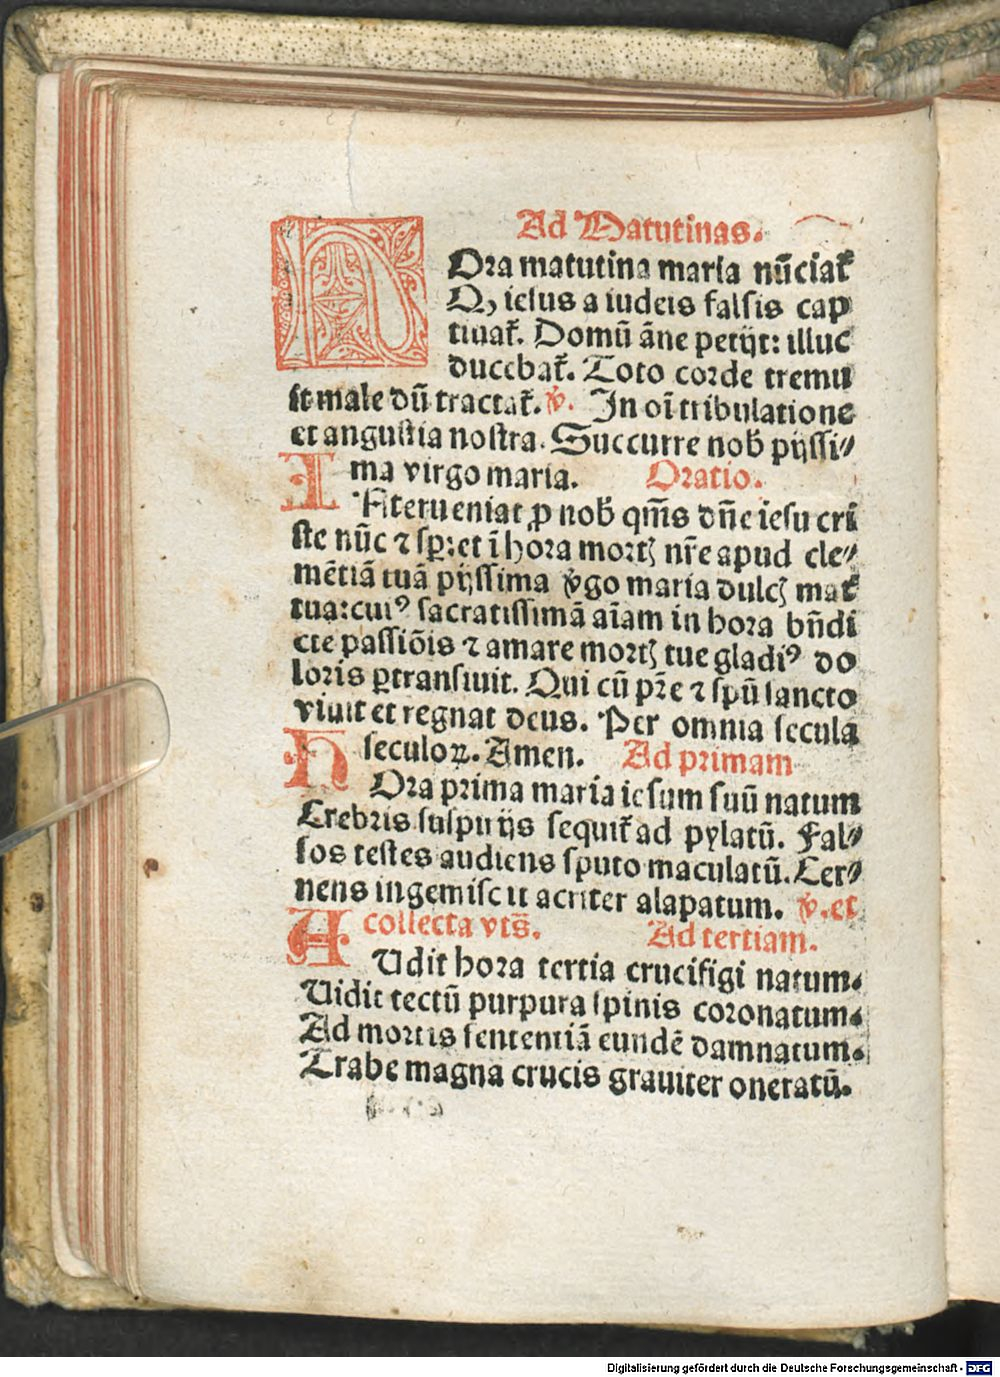 Ad Matutinas.
HOra matutina maria nūciat̄
Qꝫ iesus a iudeis falsis cap
tiuat̄. Domū āne petijt: illuc
ducebat̄. Toto corde tremu
it male dū tractat̄. ℣. In oī tribulatione
et angustia nostra. Succurre nob̄ pijssi⸗
ma virgo maria. Oratio.
INterueniat ꝓ nob̄ qm̄s dn̄e iesu cri
ste nūc ⁊ sp̱: et ī hora mortꝫ nr̄e apud cle⸗
mētiā tuā pijssima v̇go maria dulcꝫ mat̄
tua: cuiꝰ sacratissimā aīam in hora bn̄di
cte passiōis ⁊ amare mortꝫ tue gladiꝰ do
loris ꝑtransiuit. Qui cū pr̄e ⁊ spū sancto
viuit et regnat deus. Per omnia secula
seculoꝝ. Amen. Ad primam
HOra prima maria iesum suū natum
Crebris suspirijs sequit̄ ad pylatū. Fal⸗
sos testes audiens sputo maculatū. Cer⸗
nens ingemiscit acriter alapatum. ℣. et
collecta vts̄. Ad tertiam.
AUdit hora tertia crucifigi natum.
Uidit tectū purpura spinis coronatum.
Ad mortis sententiā eundē damnatum.
Trabe magna crucis grauiter oneratū.
Digitalisierung gefördert durch die Deutsche Forschungsgemeinschaft - DFG